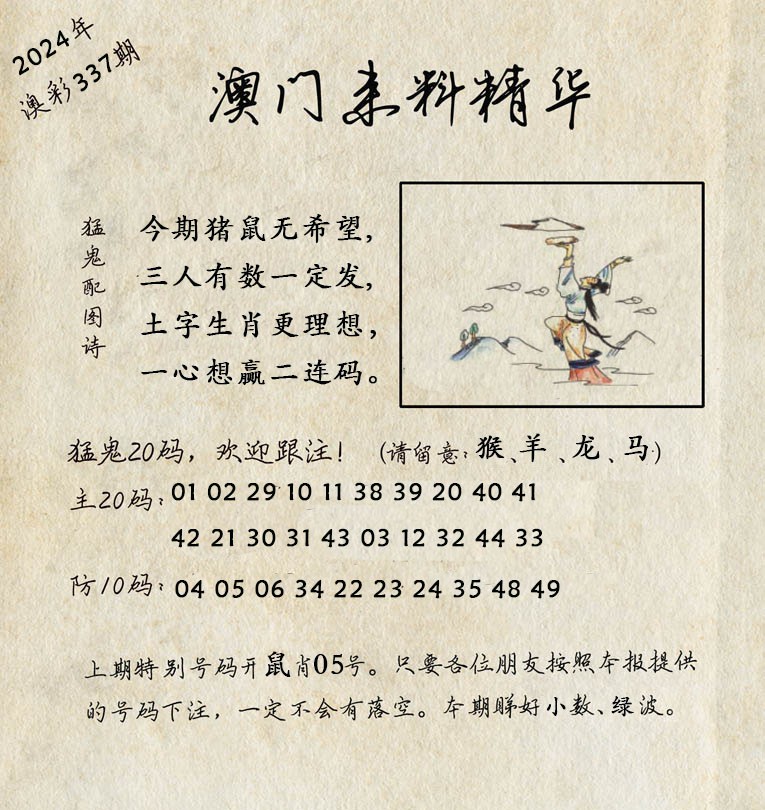 2024年
澳彩337期
澳门来料精华
猛鬼配图诗
今期猪鼠无希望，
三人有数一定发，
土字生肖更理想，
一心想赢二连码。
猛鬼20码，欢迎跟注！（请留意：猴、羊、龙、马）
主20码：01 02 29 10 11 38 39 20 40 41
42 21 30 31 43 03 12 32 44 33
防10码：04 05 06 34 22 23 24 35 48 49
上期特别号码开鼠肖05号。只要各位朋友按照本报提供
的号码下注，一定不会有落空。本期睇好小数、绿波。